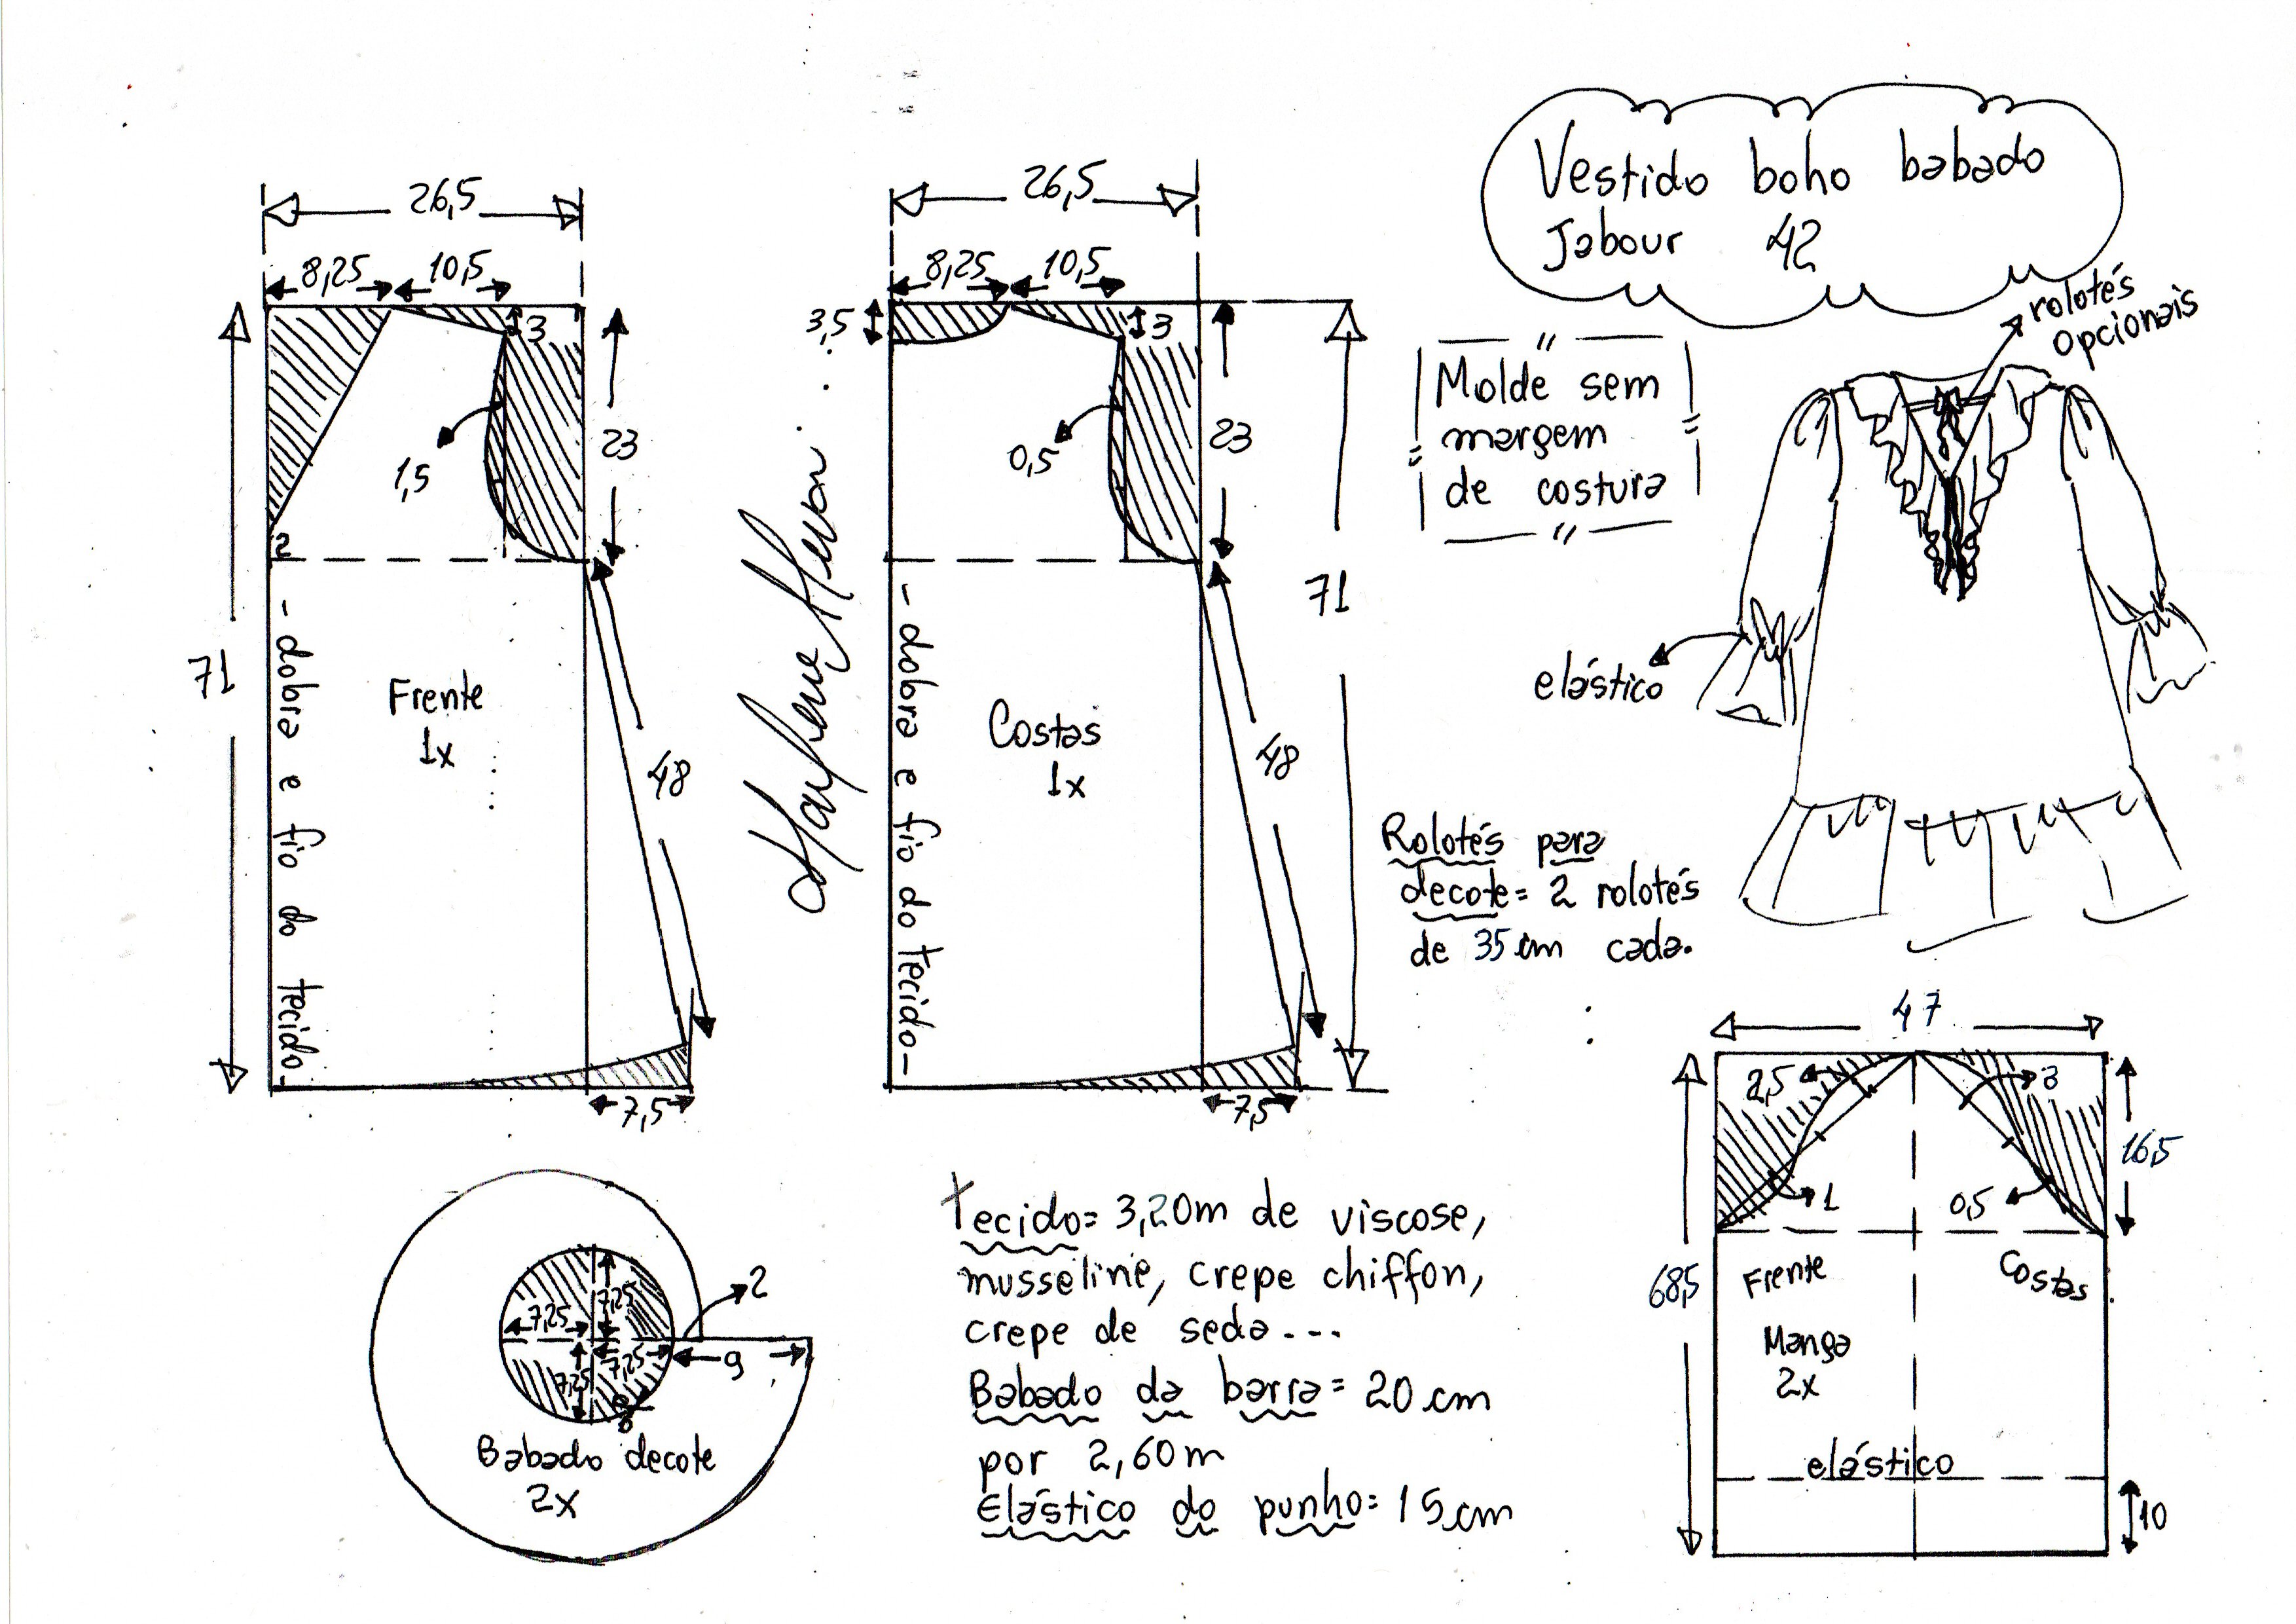 Vestido boho babado
Jabour 42
rolotés
opcionais
Molde sem
margem
de costura
elástico
Rolotés para
decote= 2 rolotés
de 35 cm cada.
26,5
8,25
10,5
3
23
1,5
2
71
48
7,5
- dobra e fio do tecido -
Frente
1x
Marlene Mukai
26,5
8,25
10,5
3,5
3
23
0,5
71
48
7,5
- dobra e fio do tecido -
Costas
1x
7,25
7,25
7,25
7,25
2
9
Babado decote
2x
Tecido= 3,20m de viscose,
musseline, crepe chiffon,
crepe de seda...
Babado da barra= 20 cm
por 2,60m
Elástico do punho= 15 cm
47
2,5
3
16,5
1
0,5
68,5
Frente
Costas
Manga
2x
elástico
10